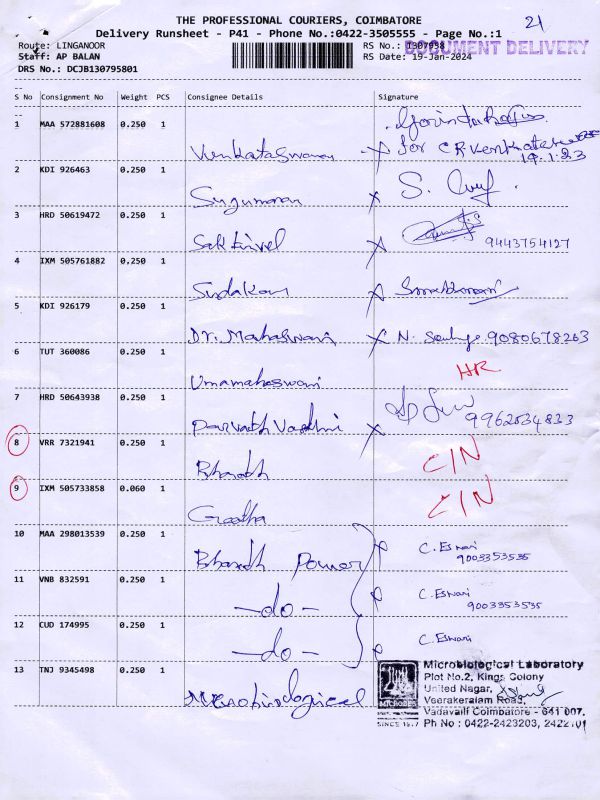 THE PROFESSIONAL COURIERS, COIMBATORE
21
Delivery Runsheet - P41 - Phone No.:0422-3505555 - Page No.:1
Route: LINGANOOR
RS No.: 1307938
DOCUMENT DELIVERY
Staff: AP BALAN
RS Date: 19-Jan-2024
DRS No.: DCJB130795801
S No Consignment No Weight PCS Consignee Details Signature
1 MAA 572881608 0.250 1
for CR Venkatesw
19.1.23
2 KDI 926463 0.250 1
Sugumaran
S.
3 HRD 50619472 0.250 1
Sakthivel
9443754127
4 IXM 505761882 0.250 1
Sudakar
5 KDI 926179 0.250 1
Dr. Maheswari
N. 9080678263
6 TUT 360086 0.250 1
Umamaheswari
HR
7 HRD 50643938 0.250 1
9962634833
8 VRR 7321941 0.250 1
Bharath
C/N
9 IXM 505733858 0.060 1
Geetha
C/N
10 MAA 298013539 0.250 1
Bharath Power
C. Eswari
9003353535
11 VNB 832591 0.250 1
-do-
C. Eswari
9003353535
12 CUD 174995 0.250 1
-do-
C. Eswari
13 TNJ 9345498 0.250 1
Microbiological
Microbiological Laboratory
Plot No.2, Kings Colony
United Nagar,
Veerakeralam Road,
Vadavalli Coimbatore - 641 007.
Ph No : 0422-2423203, 2422101
MICROBES
SINCE 1977